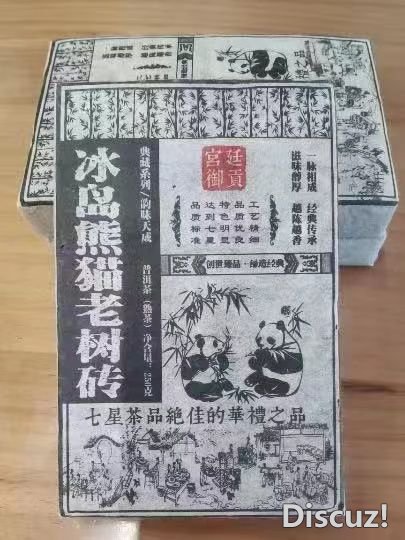 冰岛熊猫老树砖
典藏系列/韵味天成
普洱茶（熟茶）净含量：250克
宫廷
御貢
一脉相成 经典传承
滋味醇厚 越陈越香
工艺精细
品质优良
特色明显
达到七星
品质标准
创世臻品·缔造经典
七星茶品絶佳的華禮之品
Discuz!